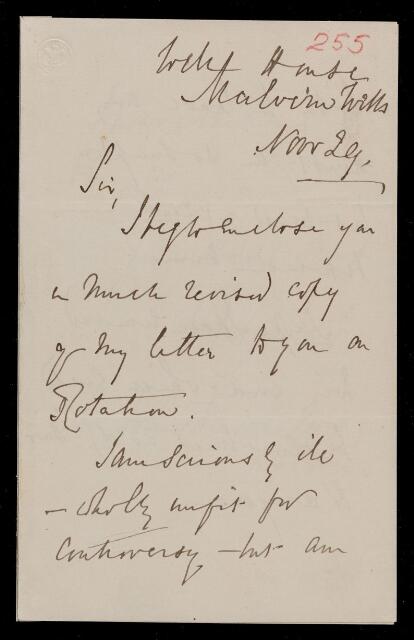 255
Well House
Malvern Wells
Nov 29.
Sir,
I beg to enclose you
a much revised copy
of my letter to you on
Rotation.
I am seriously ill
– wholly unfit for
controversy – but am